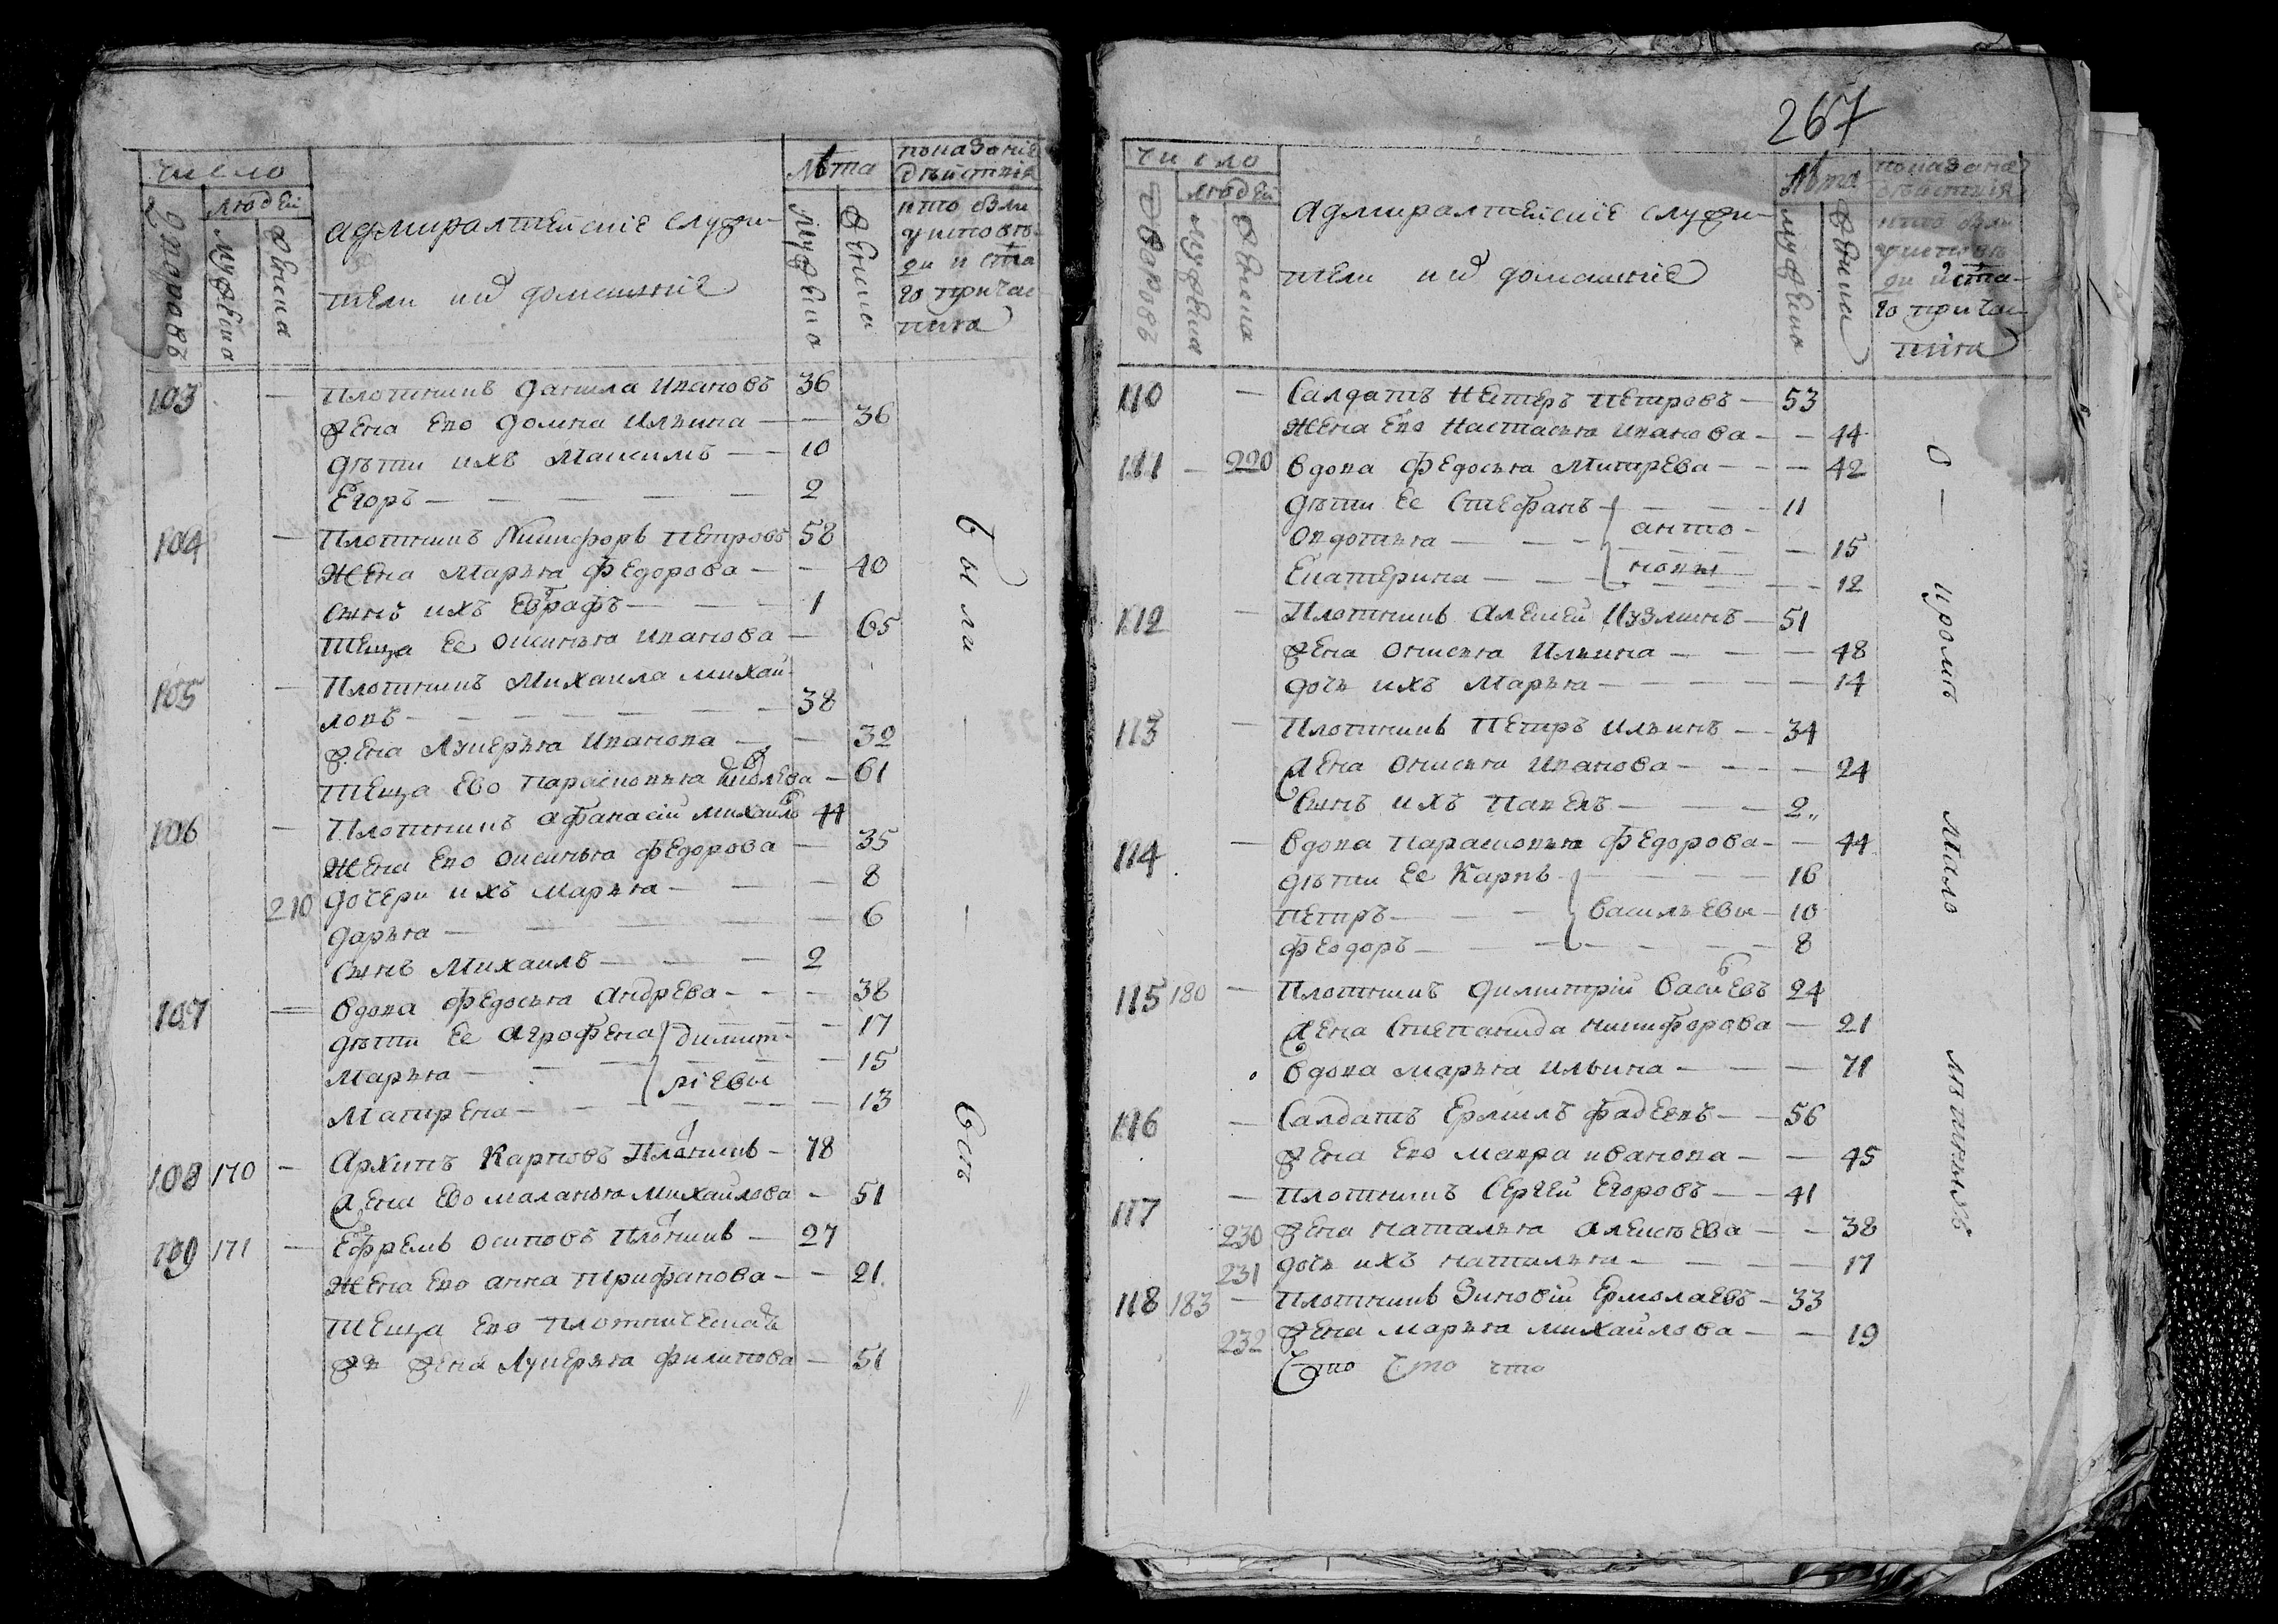 число
людей
дворовъ
мужеска
женска
адмиралтейские служи-
тели и их домашние
лѣта
мужеска
женска
показание
действия
кто были
у исповѣ-
ди и свта
го причас
тия
103 — плотникъ данила Ивановъ 36
жена ево домна Ильина — — 36
дѣти ихъ Максимъ — — 10
Егоръ — — — — — 2
104 — Плотникъ Никифоръ Петровъ 58
Жена Марья Федорова — — 40
сынъ ихъ Евграфъ — — — 1
Теща Ее Оксинья Иванова — 65
105 — Плотникъ Михаила михаи
ловъ — — — — — — 38
жена Лукерья Иванова — — 32
Теща Ево Парасковья — 61
106 — Плотникъ Афанасий михаилъ 44
Жена Ево Оксинья Федорова — 35
дочери ихъ Марья — — — 8
210 дарья — — — — — 6
сынъ Михаилъ — — — 2
107 — вдова федосья Андрева — — — 38
дѣти Ее Агрофена димит- — 17
Марья — — — риевы — 15
Матрена — — — — — — 13
108 170 — Архипъ Карповъ Плотникъ — 78
Жена Ево маланья Михаилова — 51
109 171 — Ефремъ осиповъ Плотникъ — 27
Жена Ево анна трифанова — — 21.
Теща Ево плотническая
жена Лукерья филипова — 51
были
вси
267
число
людей
дворовъ
мужеска
женска
адмиралтейские служи-
тели и их домашние
лѣта
мужеска
женска
показание
действия
кто были
у исповѣ
ди и свта-
го причас-
тия
110 — Салдатъ Петръ Петровъ — 53
Жена Ево Настасья Иванова — — 44
111 — 220 вдова федосья Митрева — — — 42
дѣти Ее Стефанъ — — — 11
Овдотья — — — анто- — 15
Екатерина — — — новы — — 12
112 — Плотникъ Алексей Кузминъ — 51
жена Онисья Ильина — — — 48
дочь ихъ Марья — — — — — 14
113 — Плотникъ Петръ Ильинъ — — 34
Жена Онисья Иванова — — — — 24
Сынъ ихъ Павелъ — — — 2„
114 — вдова Парасковья федорова — — 44
дѣти Ее Карпъ — — — — 16
Петръ — — — васильевы — 10
феодоръ — — — — — — 8
115 180 — Плотникъ димитрий васиевъ 24
Жена Степанида никифорова — 21
вдова марья ильина — — — 71
116 — Салдатъ Ермилъ фадеевъ — — 56
жена Ево мавра иванова — — 45
117 — плотникъ Сергей Егоровъ — — 41
230 жена наталья алексѣева — — 38
231 дочь ихъ наталья — — — — 17
118 183 — плотникъ Зиновий Ермолаевъ — 33
232 жена марья михаилова — — 19
Что Что что
О — кромѣ
мало
лѣтнихъ